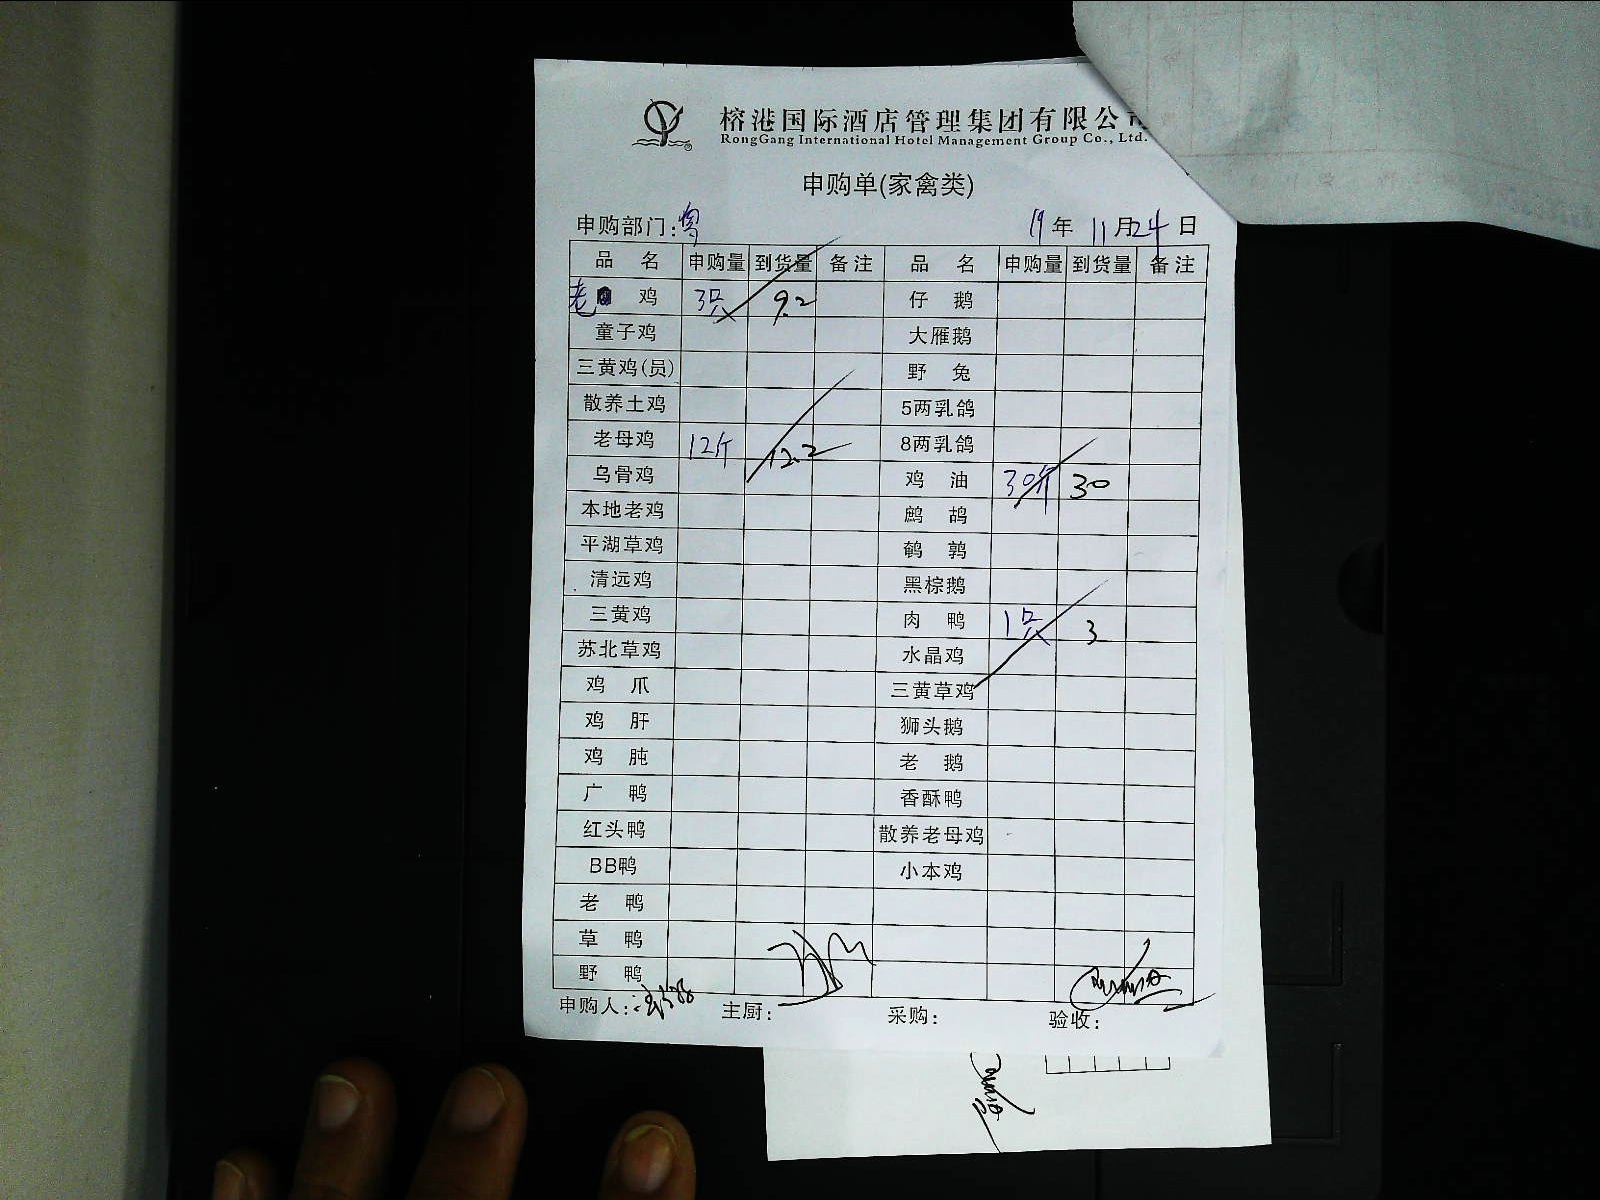 榕港国际酒店管理集团有限公司
RongGang International Hotel Management Group Co., Ltd.
申购单(家禽类)
申购部门: 粤 19年 11月24日
品 名 申购量 到货量 备注 品 名 申购量 到货量 备注
老 鸡 3只 9.2 仔 鹅
童子鸡 大雁鹅
三黄鸡(员) 野 兔
散养土鸡 5两乳鸽
老母鸡 12斤 12.2 8两乳鸽
乌骨鸡 鸡 油 30斤 30
本地老鸡 鹧 鸪
平湖草鸡 鹌 鹑
清远鸡 黑棕鹅
三黄鸡 肉 鸭 1只 3
苏北草鸡 水晶鸡
鸡 爪 三黄草鸡
鸡 肝 狮头鹅
鸡 肫 老 鹅
广 鸭 香酥鸭
红头鸭 散养老母鸡
BB鸭 小本鸡
老 鸭
草 鸭
野 鸭
申购人: 主厨: 采购: 验收: